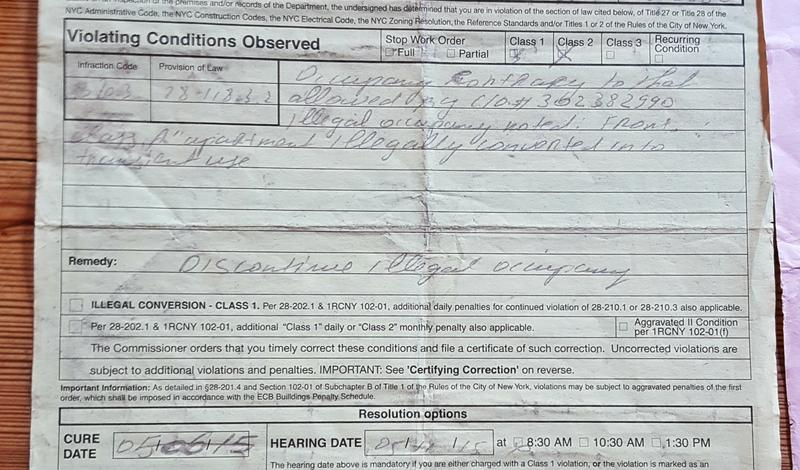 of the premises and/or records of the Department, the undersigned has determined that you are in violation of the section of law cited below, of Title 27 or Title 28 of the
NYC Administrative Code, the NYC Construction Codes, the NYC Electrical Code, the NYC Zoning Resolution, the Reference Standards and/or Titles 1 or 2 of the Rules of the City of New York.
Violating Conditions Observed
Stop Work Order
Full
Partial
Class 1
Class 2
Class 3
Recurring
Condition
Infraction Code
Provision of Law
28-118.3.2
Occupancy Contrary to that
allowed by C/O# 302382990
Illegal occupancy noted: From
Class "A" apartment Illegally converted into
transient use
Remedy: Discontinue illegal occupancy
ILLEGAL CONVERSION - CLASS 1. Per 28-202.1 & 1RCNY 102-01, additional daily penalties for continued violation of 28-210.1 or 28-210.3 also applicable.
Per 28-202.1 & 1RCNY 102-01, additional "Class 1" daily or "Class 2" monthly penalty also applicable.
Aggravated II Condition
per 1RCNY 102-01(f)
The Commissioner orders that you timely correct these conditions and file a certificate of such correction. Uncorrected violations are
subject to additional violations and penalties. IMPORTANT: See 'Certifying Correction' on reverse.
Important Information: As detailed in §28-201.4 and Section 102-01 of Subchapter B of Title 1 of the Rules of the City of New York, violations may be subject to aggravated penalties of the first
order, which shall be imposed in accordance with the ECB Buildings Penalty Schedule.
Resolution options
CURE
DATE
HEARING DATE
at 8:30 AM 10:30 AM 1:30 PM
The hearing date above is mandatory if you are either charged with a Class 1 violation, or the violation is marked as an